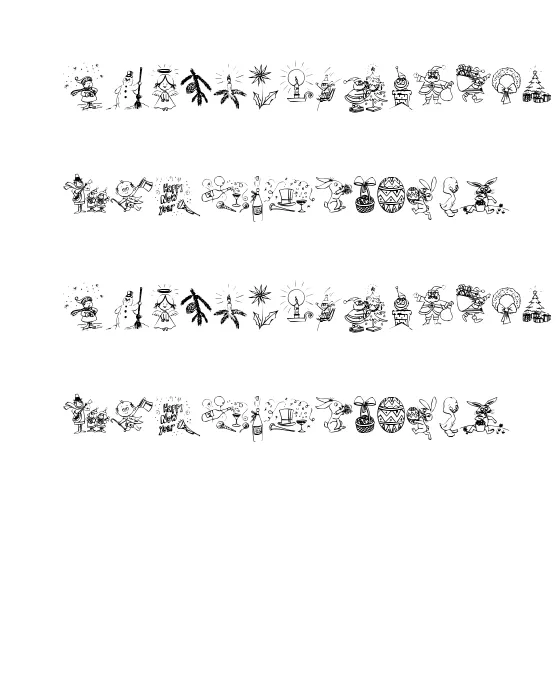 Happy
New
year
Happy
New
year